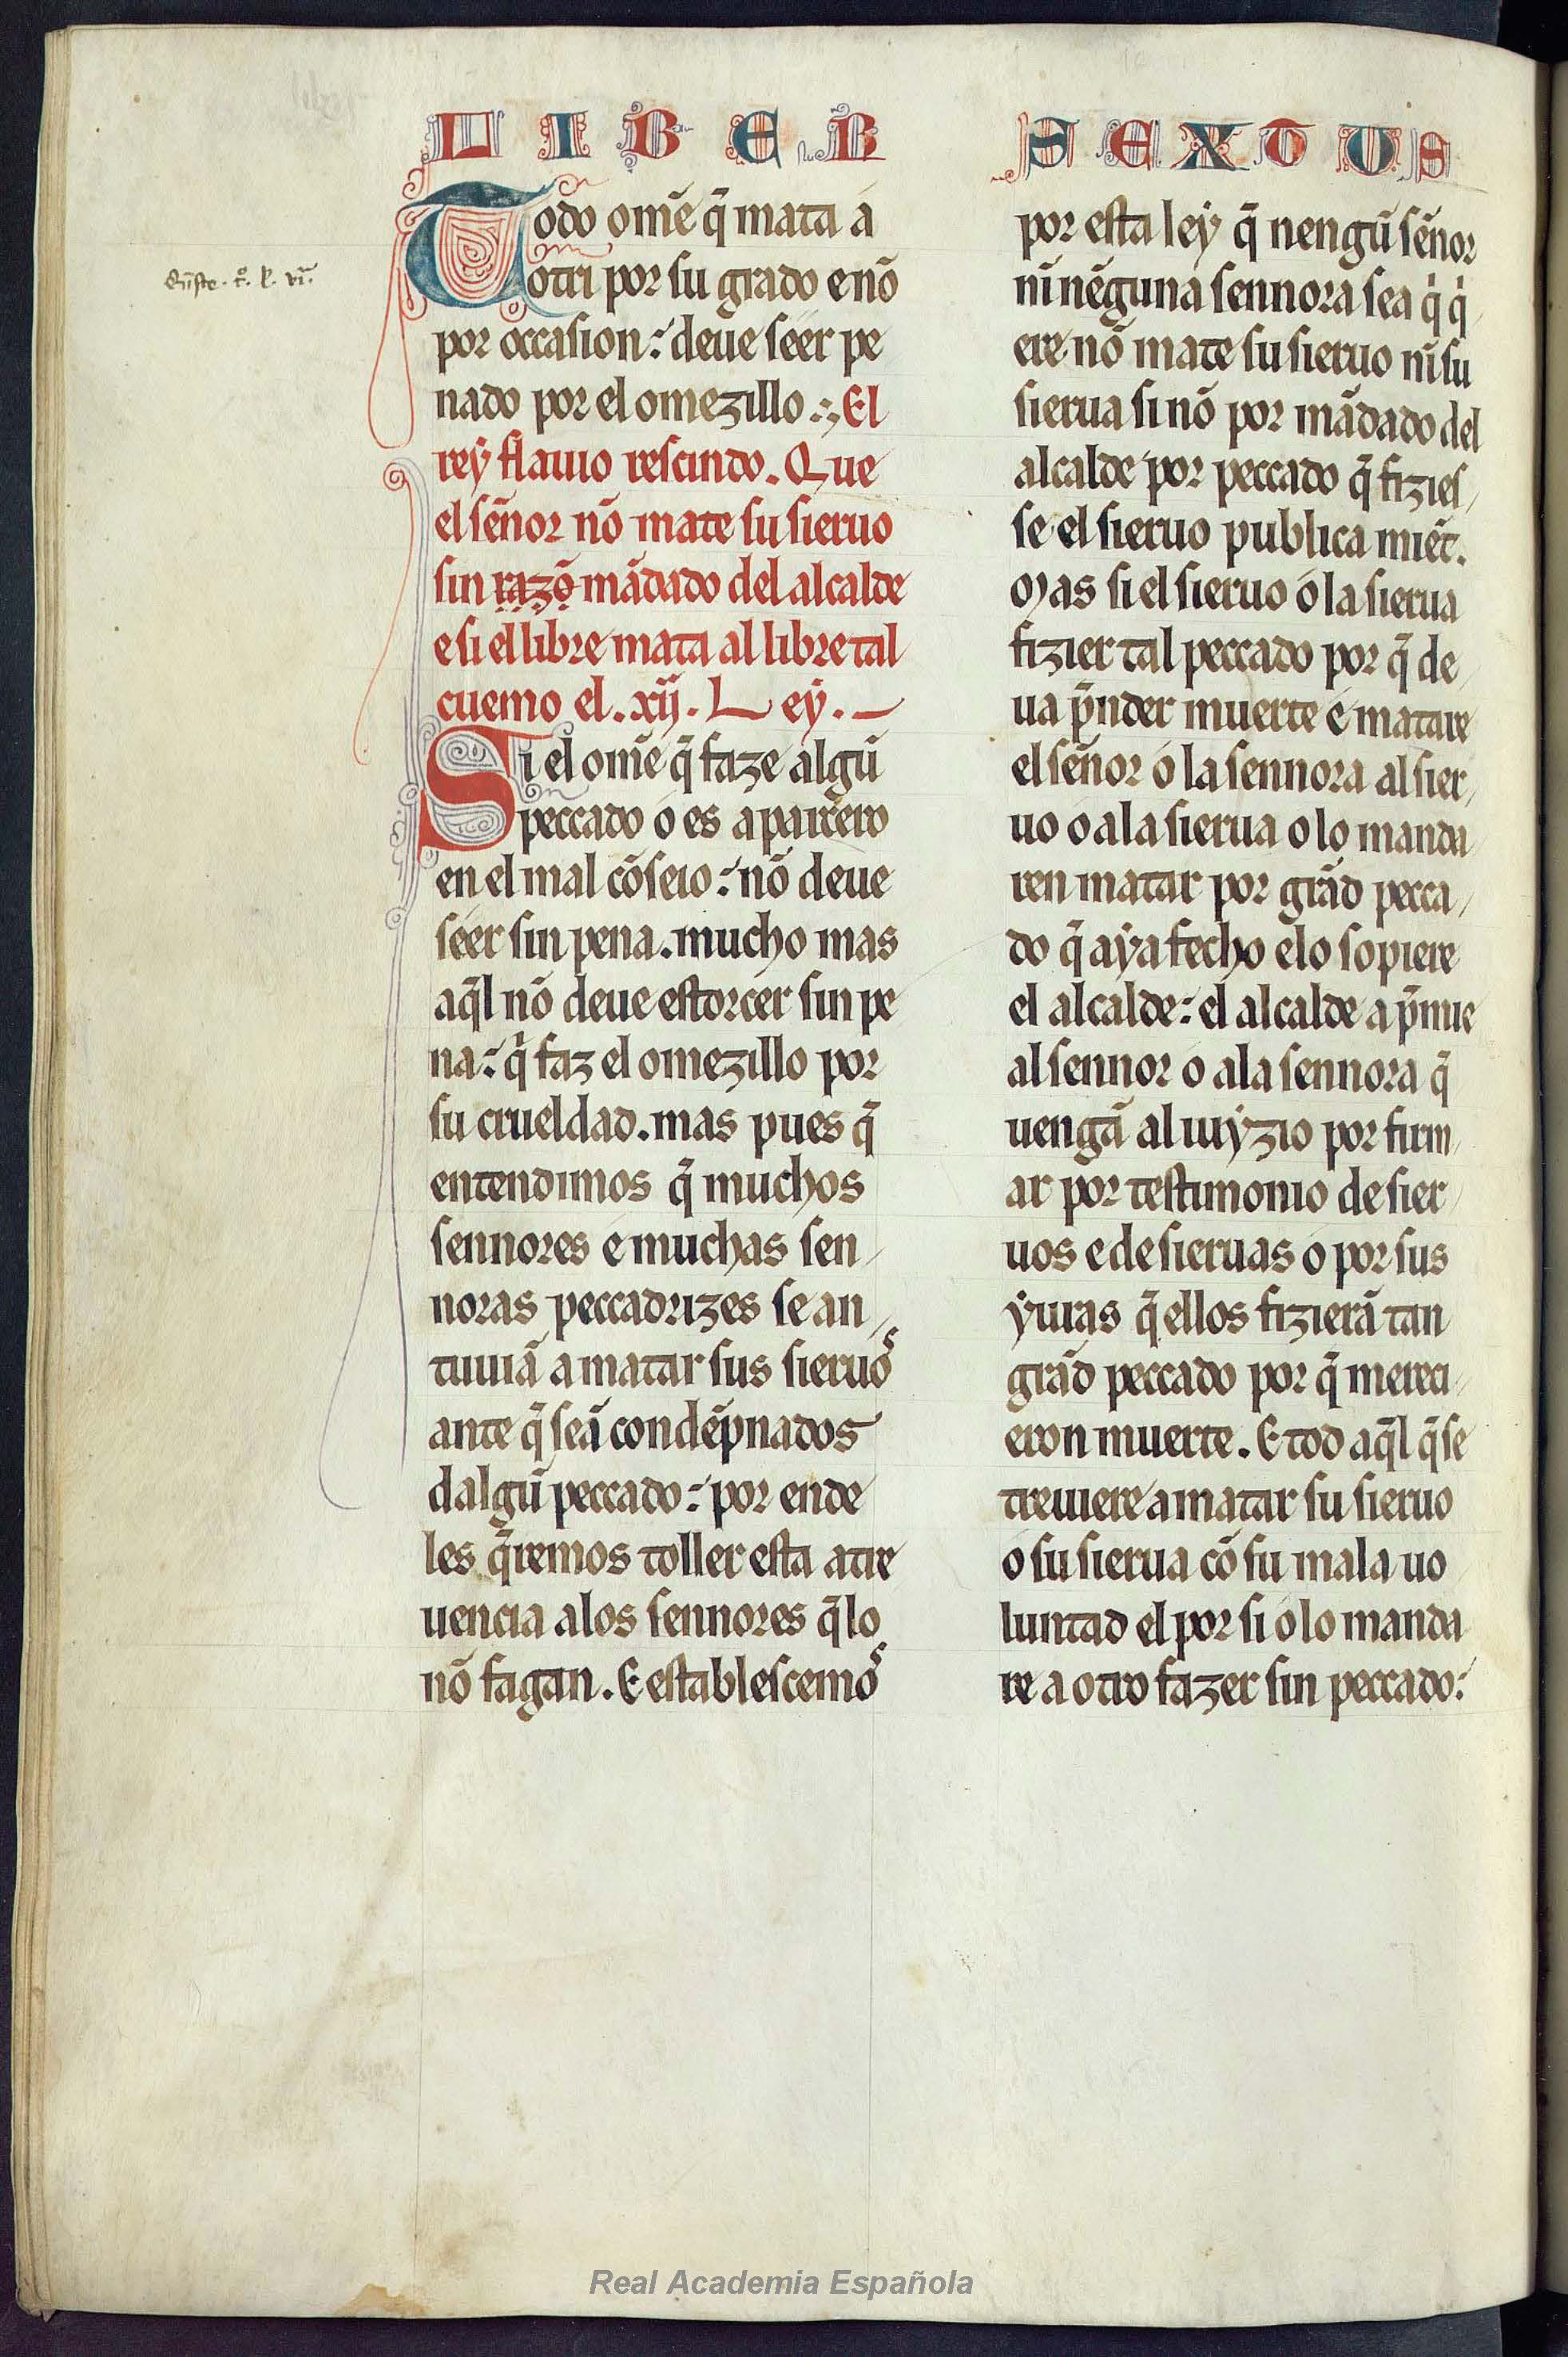 LIBER SEXTUS
Todo om̃e q̃ mata a
otri por su grado e nõ
por occasion: deue seer pe
nado por el omezillo. El
rey flauio rescindo. Que
el sẽnor nõ mate su sieruo
sin razõ mãdado del alcalde
e si el libre mata al libre tal
cuemo el .xij. Ley.
Si el om̃e q̃ faze algũ
peccado o es aparcero
en el mal cõseio: nõ deue
seer sin pena. mucho mas
aq̃l nõ deue estorcer sin pe
na: q̇ faz el omezillo por
su crueldad. mas pues q̃
entendimos q̃ muchos
sennores e muchas sen
noras peccadrizes se an
tuuiã a matar sus sieruoˢ
ante q̃ seã condẽpnados
dalgũ peccado: por ende
les q̃remos toller esta atre
uencia a los sennores q̃ lo
nõ fagan. E establescemoˢ
por esta ley q̃ nengũ sẽnor
nĩ nẽguna sennora sea q̇ q̇
ere nõ mate su sieruo nĩ su
sierua si nõ por mãdado del
alcalde por peccado q̃ fizies
se el sieruo publica miẽt.
Mas si el sieruo o la sierua
fizier tal peccado por q̃ de
ua p̃nder muerte e matare
el sẽnor o la sennora al sier
uo o a la sierua o lo manda
ren matar por grãd pecca
do q̃ aya fecho e lo sopiere
el alcalde: el alcalde a p̃mie
al sennor o a la sennora q̃
uengã al iuyzio por firm
ar por testimonio de sier
uos e de sieruas o por sus
yuras q̃ ellos fizierã tan
grãd peccado por q̃ mereci
eron muerte. E tod aq̃l q̃ se
treuiere a matar su sieruo
o su sierua cõ su mala uo
luntad el por si o lo manda
re a otro fazer sin peccado:
Real Academia Española